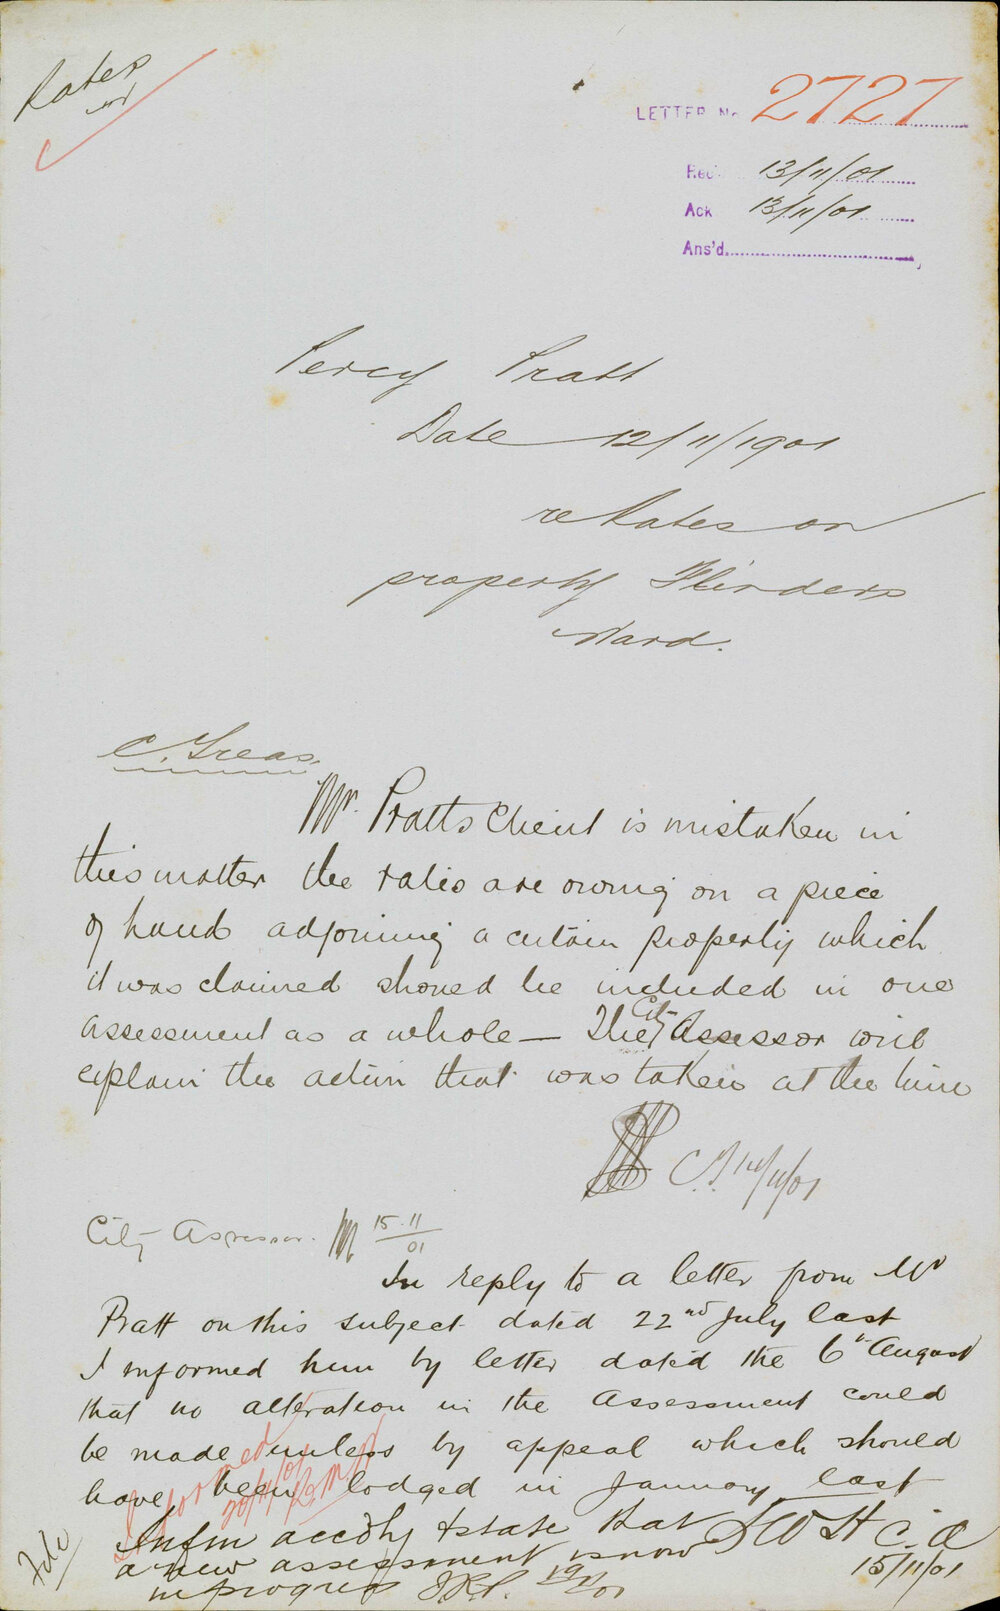 Rates
LETTER No 2727
Rec 13/11/01
Ack 13/11/01
Ans'd.
Percy Pratt
Date 12/11/1901
re Rates on
property Flinders
Ward.
C. Treas.
Mr. Pratts Client is mistaken in
this matter the rates are owing on a piece
of land adjoining a certain property which
it was claimed should be included in one
assessment as a whole — The City Assessor will
explain the action that was taken at the time
C.T. 14/11/01
City Assessor. 15.11/01
In reply to a letter from Mr
Pratt on this subject dated 22nd July last
I informed him by letter dated the 6th August
that no alteration in the Assessment could
be made unless by appeal which should
have been lodged in January last
JWH C.A
15/11/01
Informed
20/11/01
Inform accdly & state that
a new assessment is now
in progress 19/11/01
File